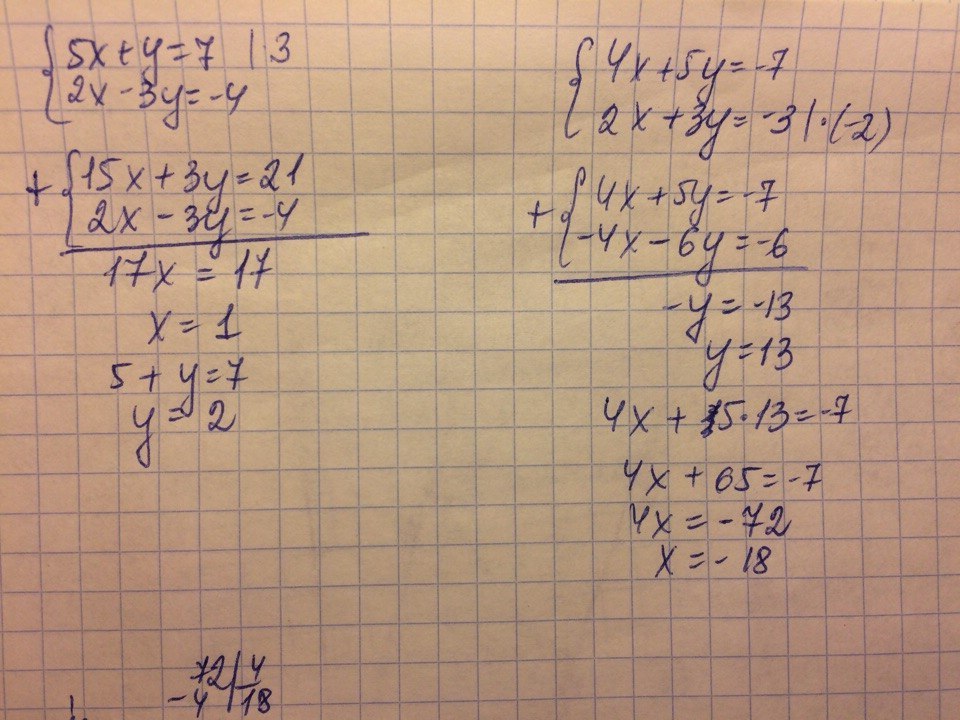 5x+y=7 | 3
2x-3y=-4
+ 15x+3y=21
2x-3y=-4
17x=17
x=1
5+y=7
y=2
4x+5y=-7
2x+3y=-3|·(-2)
+ 4x+5y=-7
-4x-6y=-6
-y=-13
y=13
4x+5·13=-7
4x+65=-7
4x=-72
x=-18
72|4
-4|18